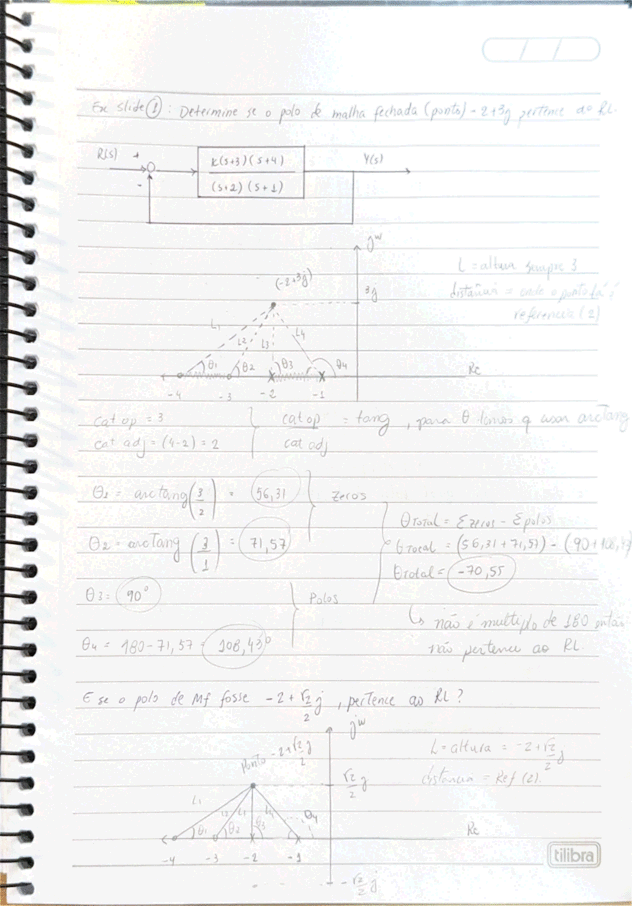 Ex slide 1: Determine se o polo de malha fechada (ponto) -2+3j pertence ao RL.
R(s) + K(s+3)(s+4) Y(s)
- (s+2)(s+1)
jw
(-2+3j) 3j
L = altura sempre 3
distância = onde o ponto tá é
referencia (2)
L1 L2 L3 L4
θ1 θ2 θ3 θ4 Re
-4 -3 -2 -1
cat op = 3 cat op = tang, para θ temos q usar arctang
cat adj = (4-2) = 2 cat adj
θ1 = arctang(3/2) = 56,31 zeros
θtotal = Σzeros - Σpolos
θ2 = arctang (3/1) = 71,57 θtotal = (56,31+71,57) - (90+108,43
θtotal = -70,55
θ3 = 90° Polos
θ4 = 180-71,57 = 108,43°
↳ não é multiplo de 180 então
não pertence ao RL.
E se o polo de Mf fosse -2+√2/2 j, pertence ao RL?
jw
Ponto -2+√2/2 j √2/2 j
L = altura = -2+√2/2 j
distância = Ref (2).
L1 L2 L3 L4
θ1 θ2 θ3 θ4 Re
-4 -3 -2 -1
-√2/2 j
tilibra